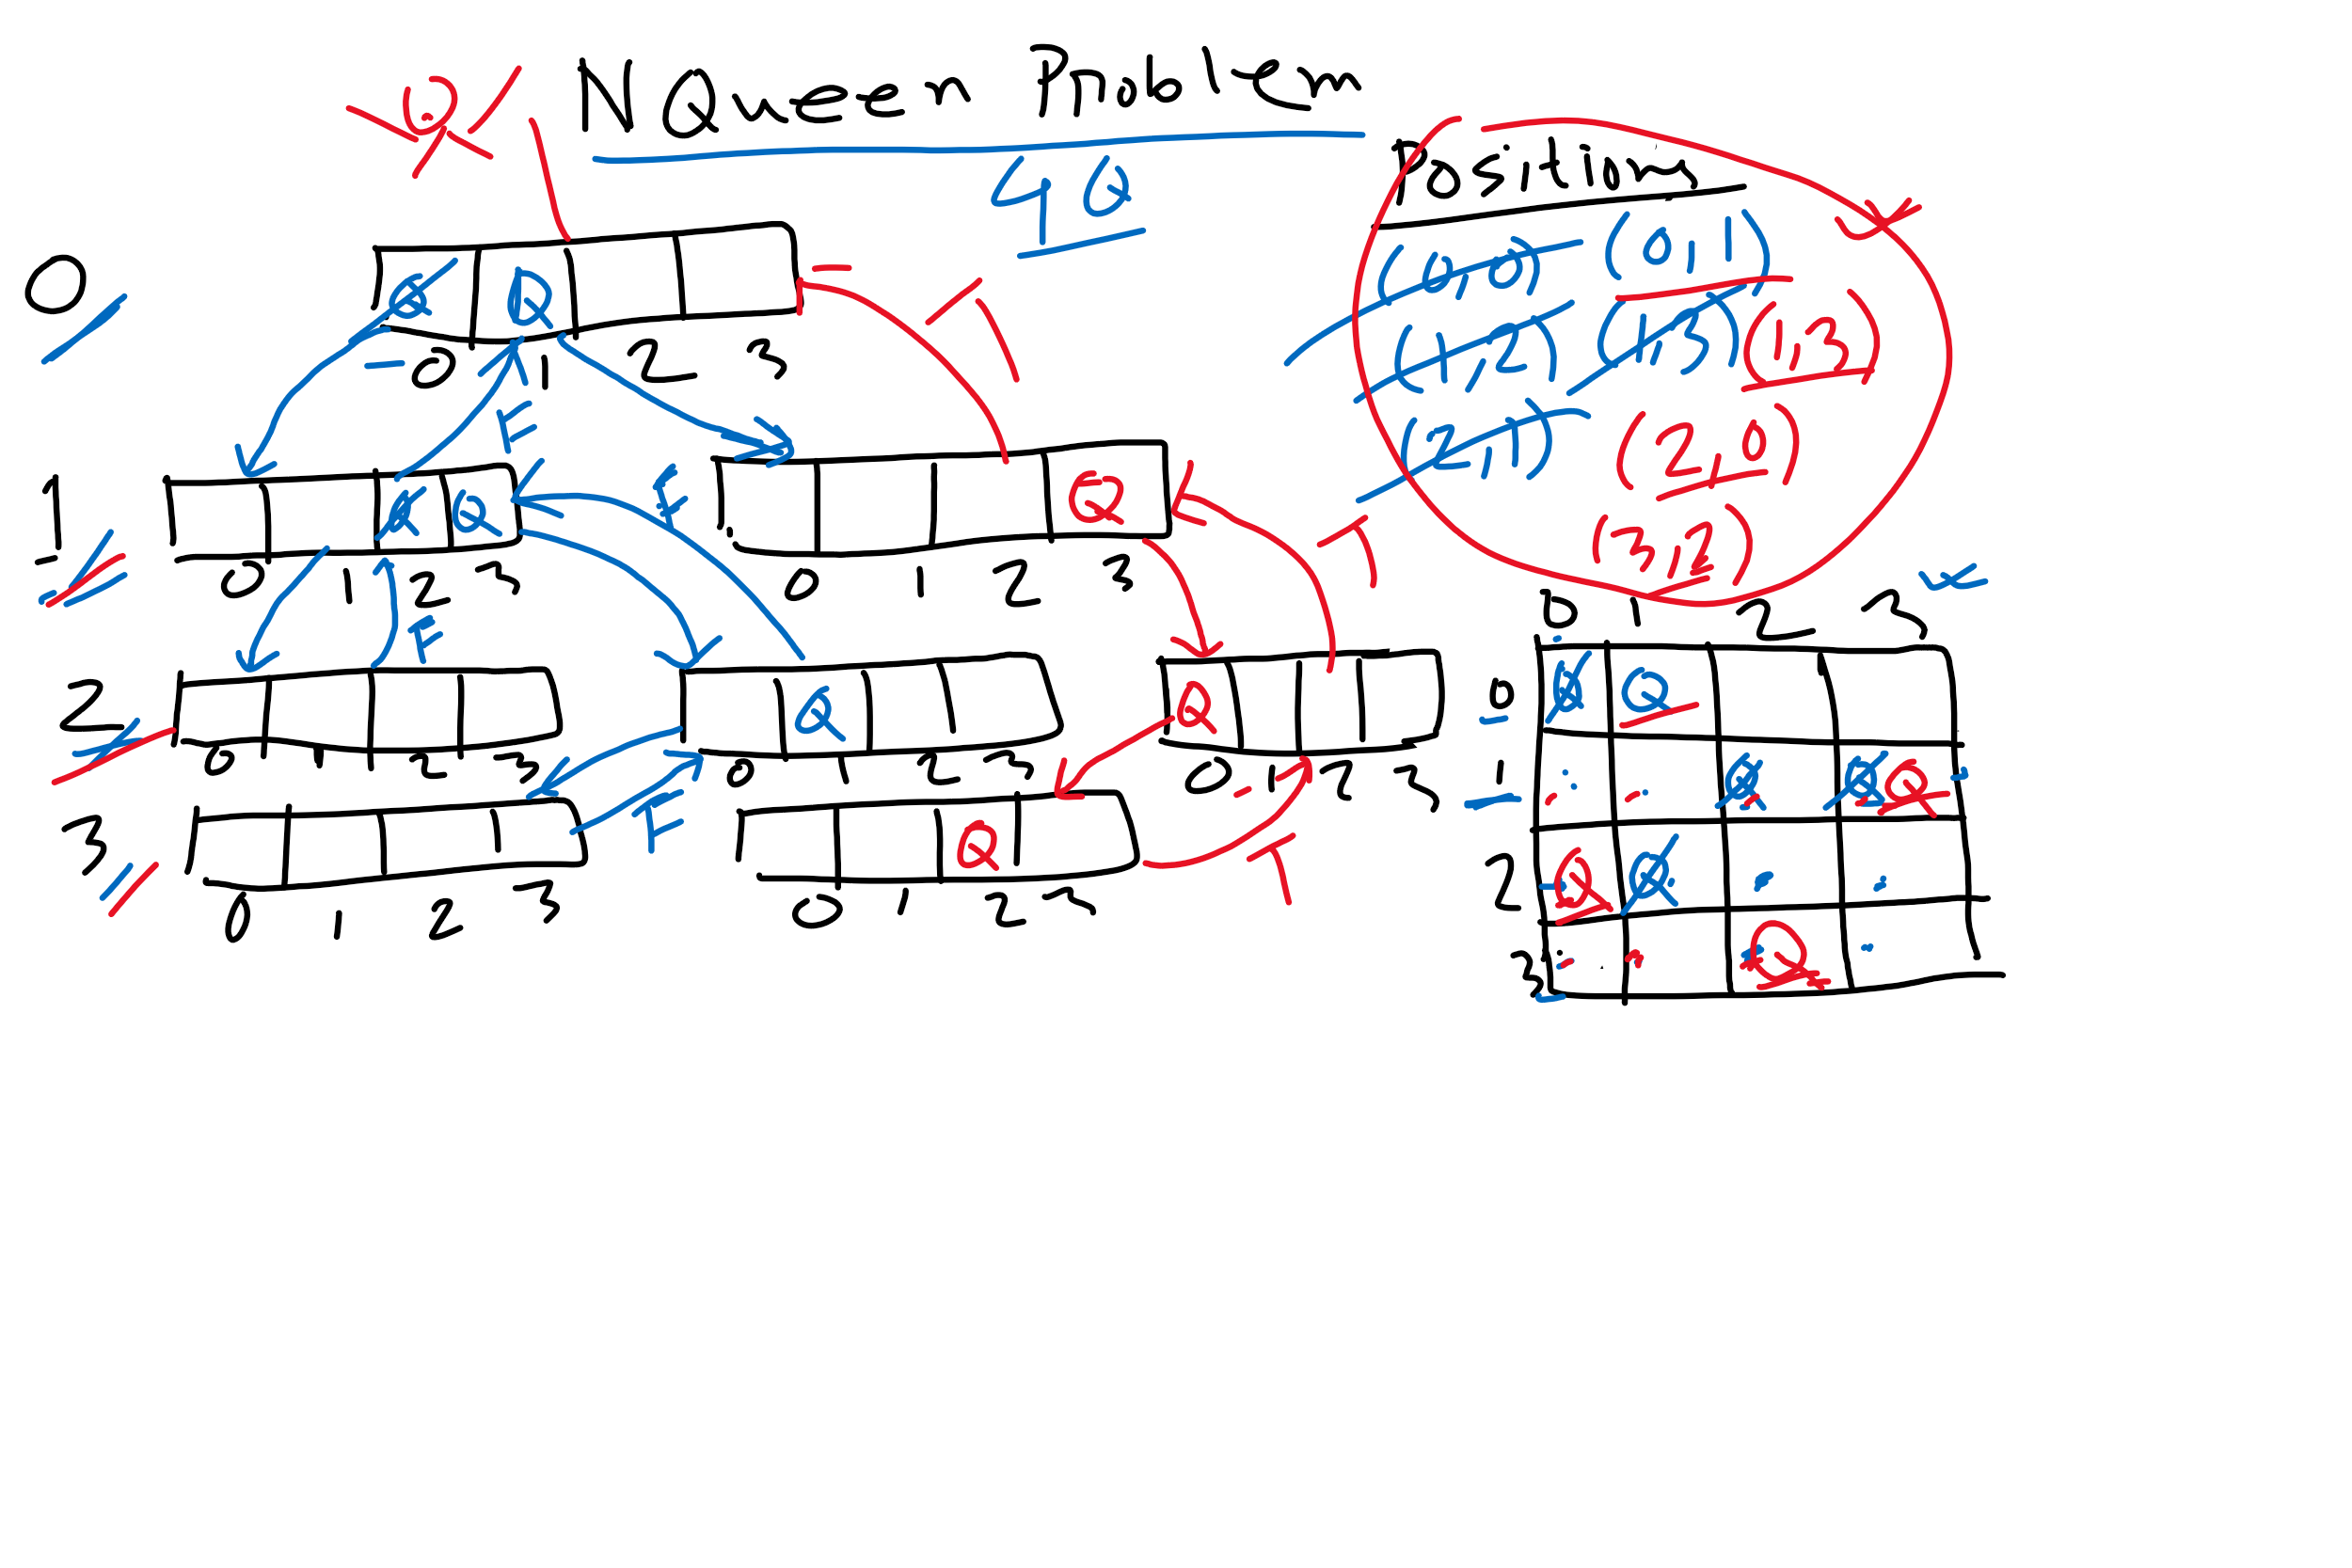 N Queen Problem
4Q
Positions
(0,0) (0,1)
(1,2) (1,3) (1,3)
(2,1) (2,0)
(3,2)
0 Q Q
0 1 2 3
F T
1 Q Q F Q
0 1 2 3 0 1 2 3
F T
2 Q Q
0 1 2 3 0 1 2 3 0 1 2 3
3 F Q T
0 1 2 3 0 1 2 3
0 1 2 3
0 Q Q
1 Q Q Q
2 Q Q
3 Q